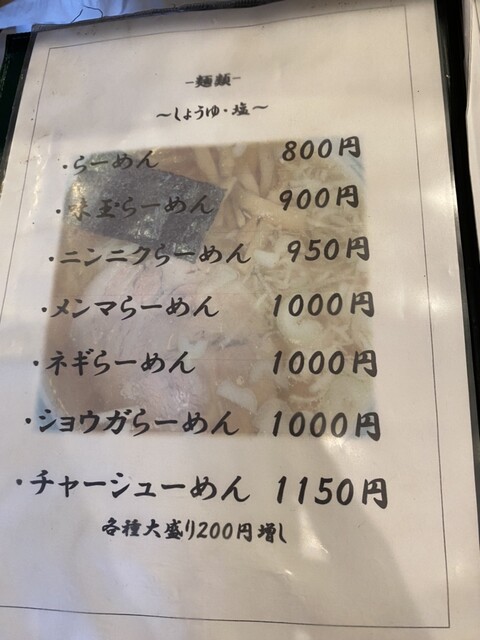 -麺類-
～しょうゆ・塩～
・らーめん 800円
・味玉らーめん 900円
・ニンニクらーめん 950円
・メンマらーめん 1000円
・ネギらーめん 1000円
・ショウガらーめん 1000円
・チャーシューめん 1150円
各種大盛り200円増し